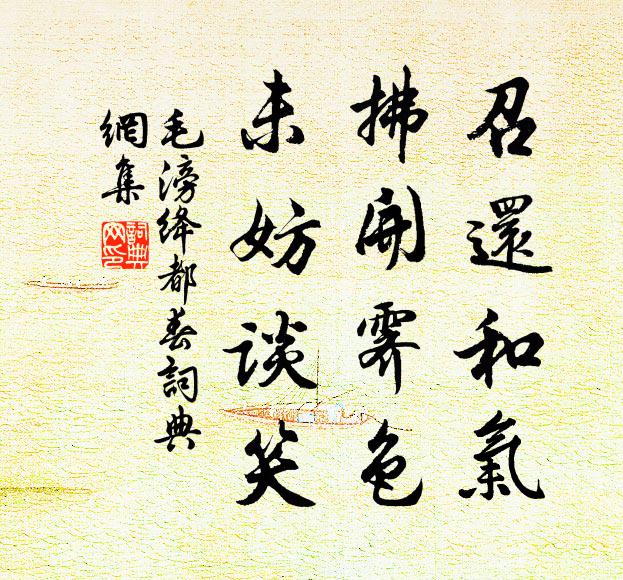 召還和氣
拂開霽色
未妨談笑
毛滂絳都春詞典
網集
詞典
网印